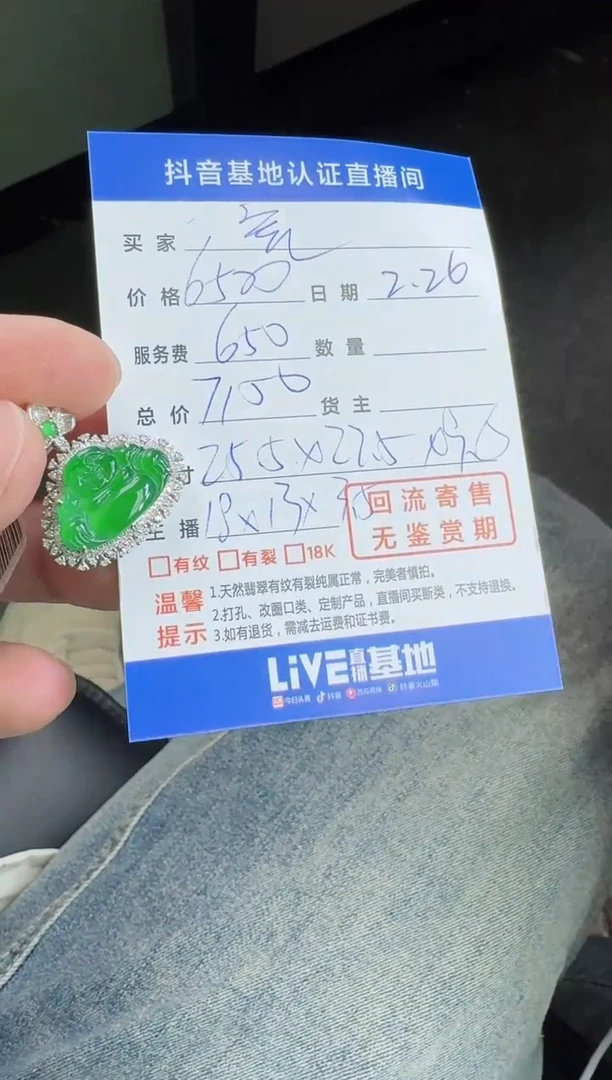 抖音基地认证直播间
买家
价格 6500 日期 2.26
服务费 650 数量
总价 7150 货主
寸 25.5×22.5×9.5
主播 18×13×3.5
回流寄售
无鉴赏期
□有纹 □有裂 □18K
温馨提示
1.天然翡翠有纹有裂纯属正常，完美者慎拍。
2.打孔、改圈口类、定制产品，直播间买断类，不支持退换。
3.如有退货，需减去运费和证书费。
LiVE直播基地
今日头条 抖音 西瓜视频 抖音火山版